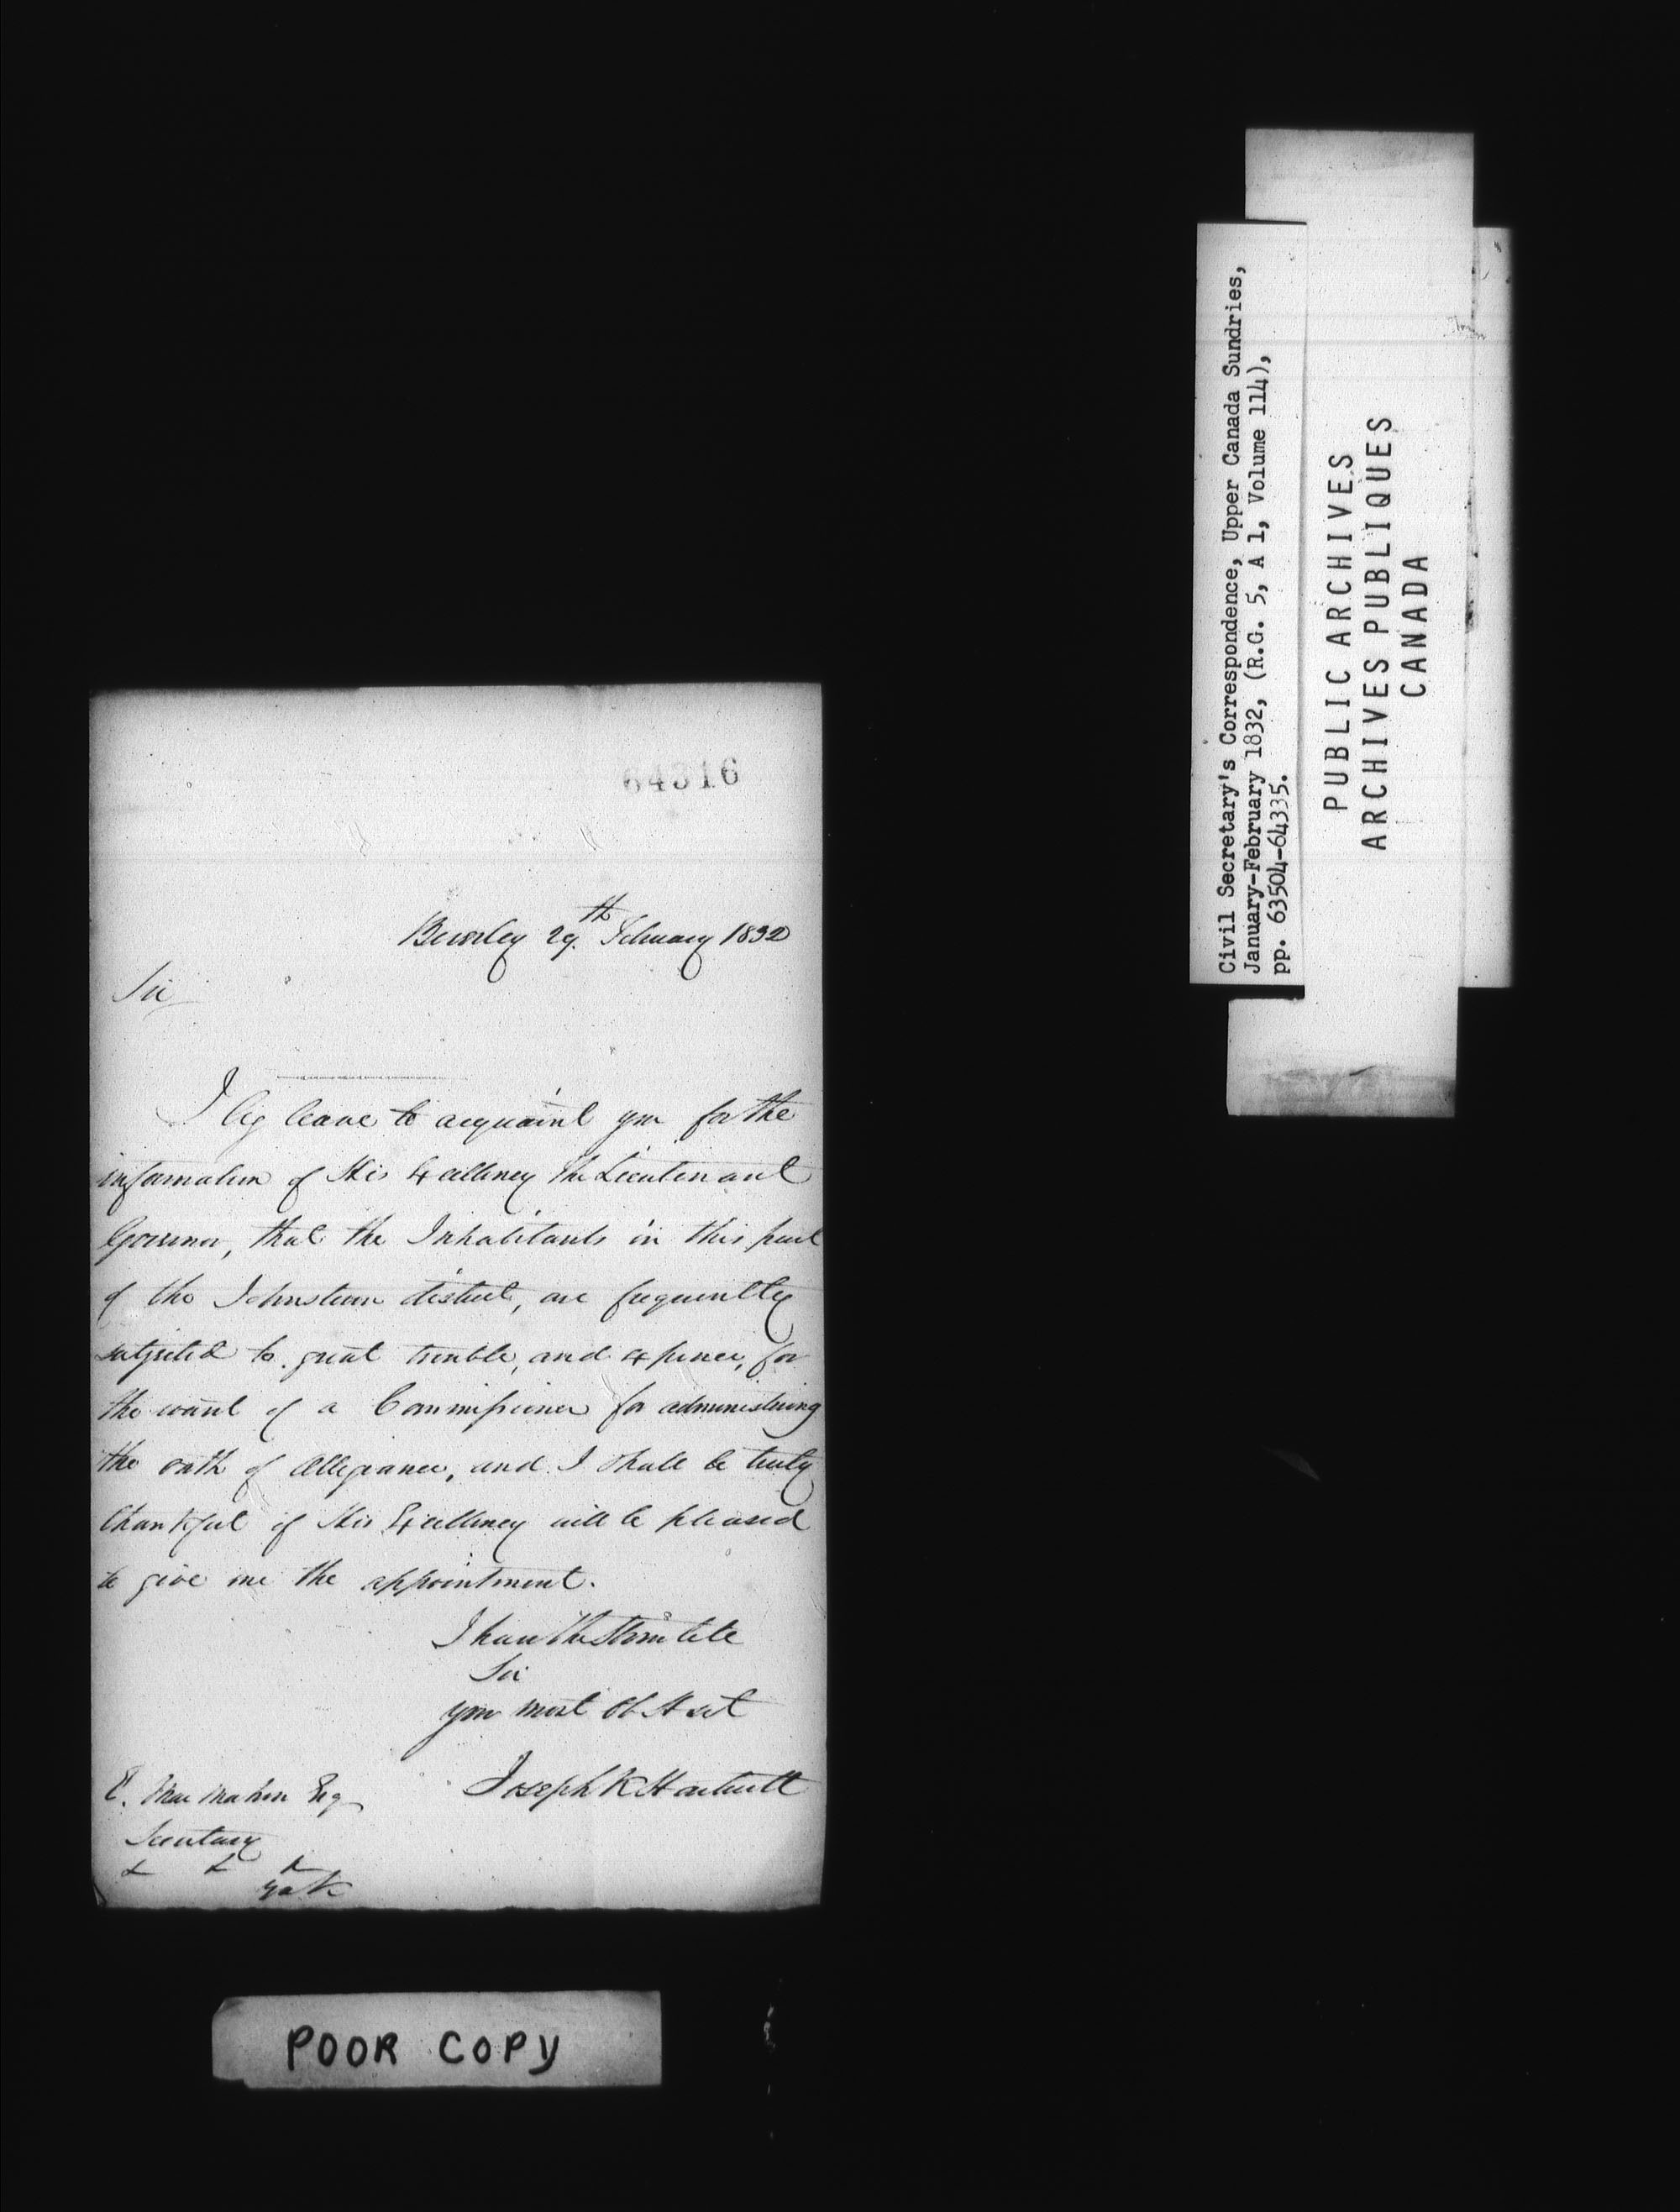 64316
Beverley 29th February 1832
Sir
I beg leave to acquaint you for the
information of His Excellency the Lieutenant
Governor, that the Inhabitants in this part
of the Johnstown district, are frequently
subjected to great trouble, and expence, for
the want of a Commissioner for administering
the oath of Allegiance, and I shall be truly
thankful if His Excellency will be pleased
to give me the appointment.
I have the Honor to be
Sir
your most Obt St
Joseph K Hartwell
E. MacMahon Esq
Secretary
& & &
York
POOR COPY
Civil Secretary's Correspondence, Upper Canada Sundries,
January-February 1832, (R.G. 5, A 1, Volume 114),
pp. 63504-64335.
PUBLIC ARCHIVES
ARCHIVES PUBLIQUES
CANADA